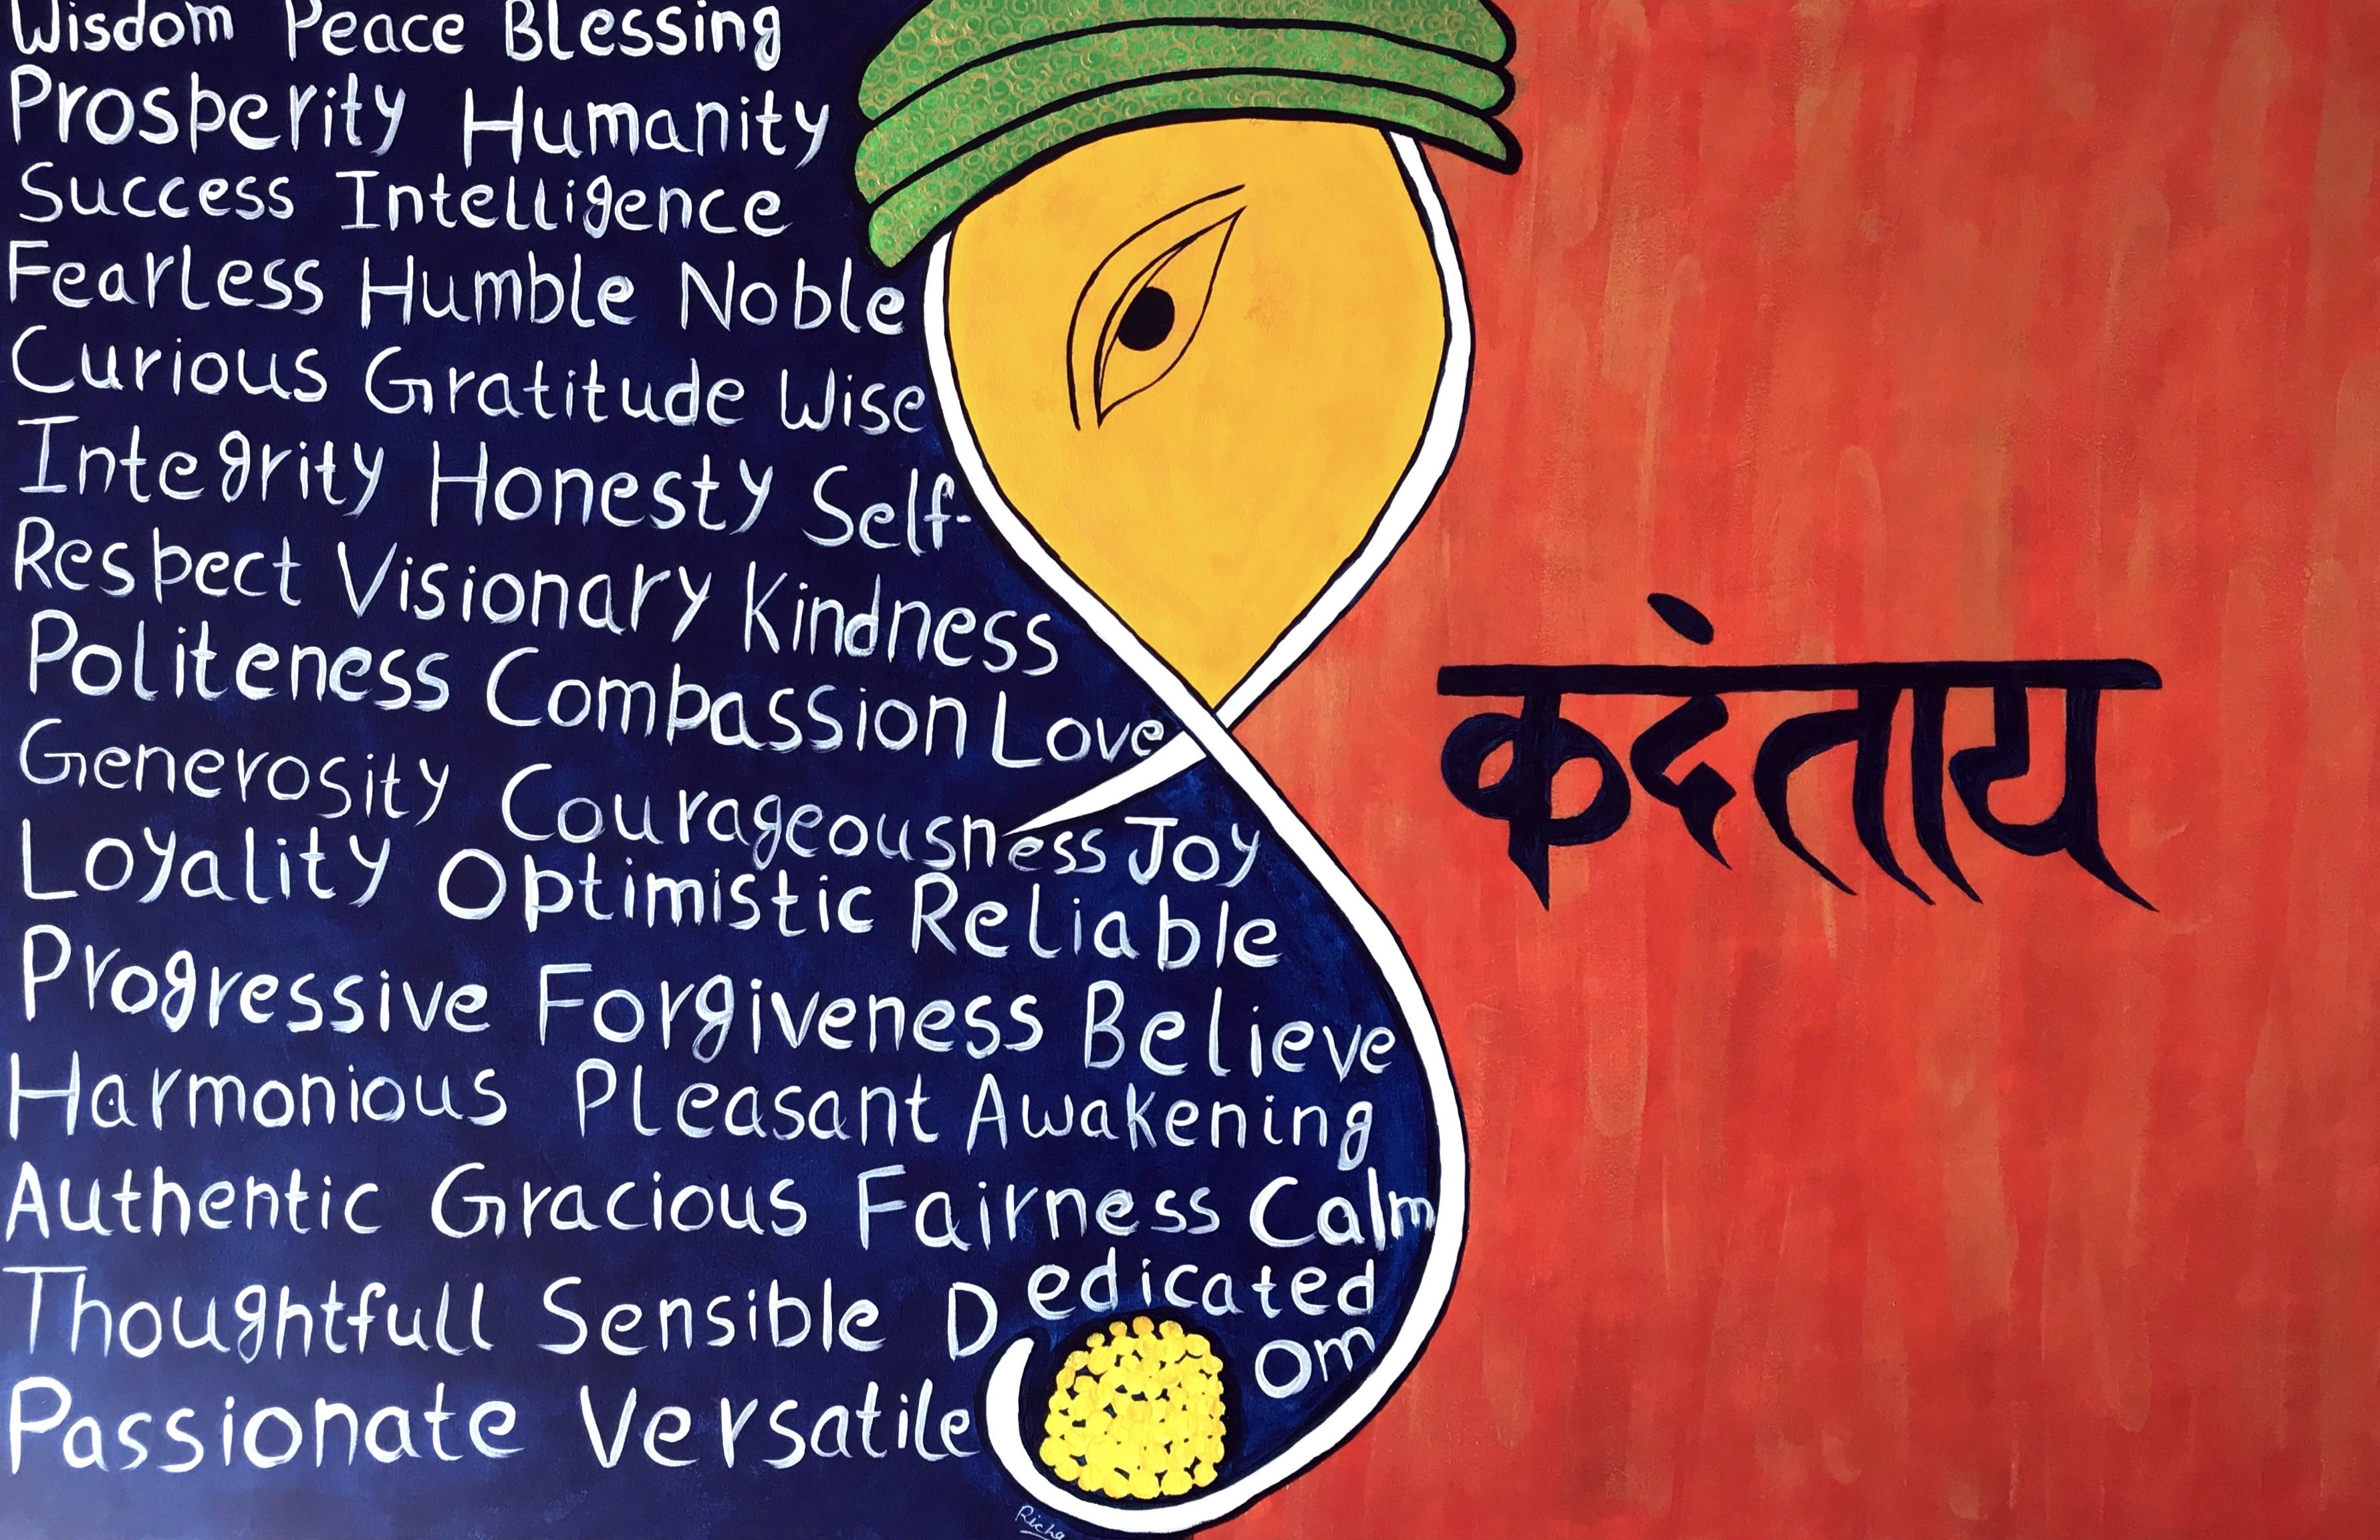 Wisdom Peace Blessing
Prosperity Humanity
Success Intelligence
Fearless Humble Noble
Curious Gratitude Wise
Integrity Honesty Self-
Respect Visionary Kindness
Politeness Compassion Love
Generosity Courageousness Joy
Loyality Optimistic Reliable
Progressive Forgiveness Believe
Harmonious Pleasant Awakening
Authentic Gracious Fairness Calm
Thoughtfull Sensible Dedicated
Om
Passionate Versatile
Richa
कदंताय